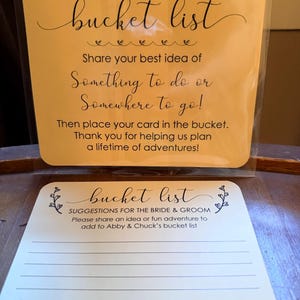 bucket list
Share your best idea of
Something to do or
Somewhere to go!
Then place your card in the bucket.
Thank you for helping us plan
a lifetime of adventures!
bucket list
SUGGESTIONS FOR THE BRIDE & GROOM
Please share an idea or fun adventure to
add to Abby & Chuck's bucket list